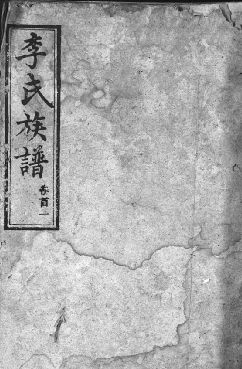 李氏族譜
卷首一